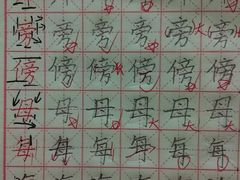 旁旁旁旁旁旁
傍傍傍傍傍傍
母母母母母母
每每每每每每